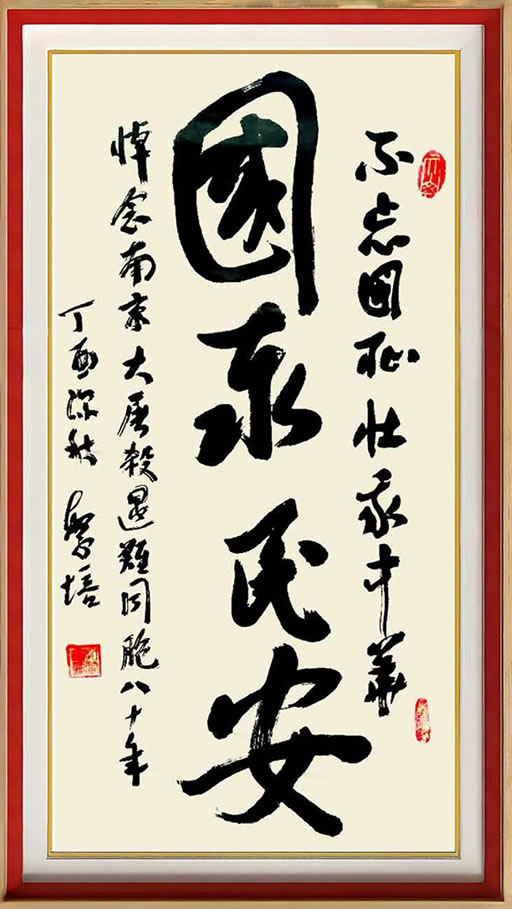 不忘国耻壮我中华
國泰民安
悼念南京大屠殺遇難同胞八十年
丁酉深秋 馨培